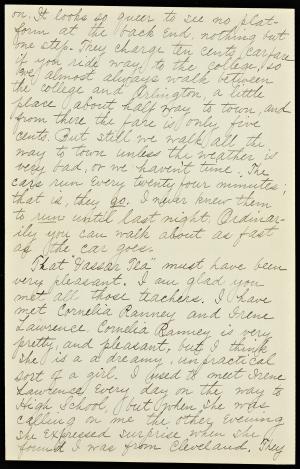 on. It looks so queer to see no plat-
form at the back end, nothing but
one step. They charge ten cents carfare
if you ride way to the college, so
we almost always walk between
the college and Arlington, a little
place about half way to town and
from there the fare is only five
cents. But still we walk all the
way to town unless the weather is
very bad, or we haven't time. The
cars run every twenty four minutes;
that is, they go. I never knew them
to run until last night. Ordinar-
ily you can walk about as fast
as the car goes.
That "Vassar Tea" must have been
very pleasant. I am glad you
met all those teachers. I have
met Cornelia Ranney and Irene
Lawrence. Cornelia Ranney is very
pretty, and pleasant, but I think
she is a a dreamy, unpractical
sort of a girl. I used to meet Irene
Lawrence every day on the way to
High School, but when she was
calling on me the other evening
she expressed surprise when she
found I was from Cleveland. They